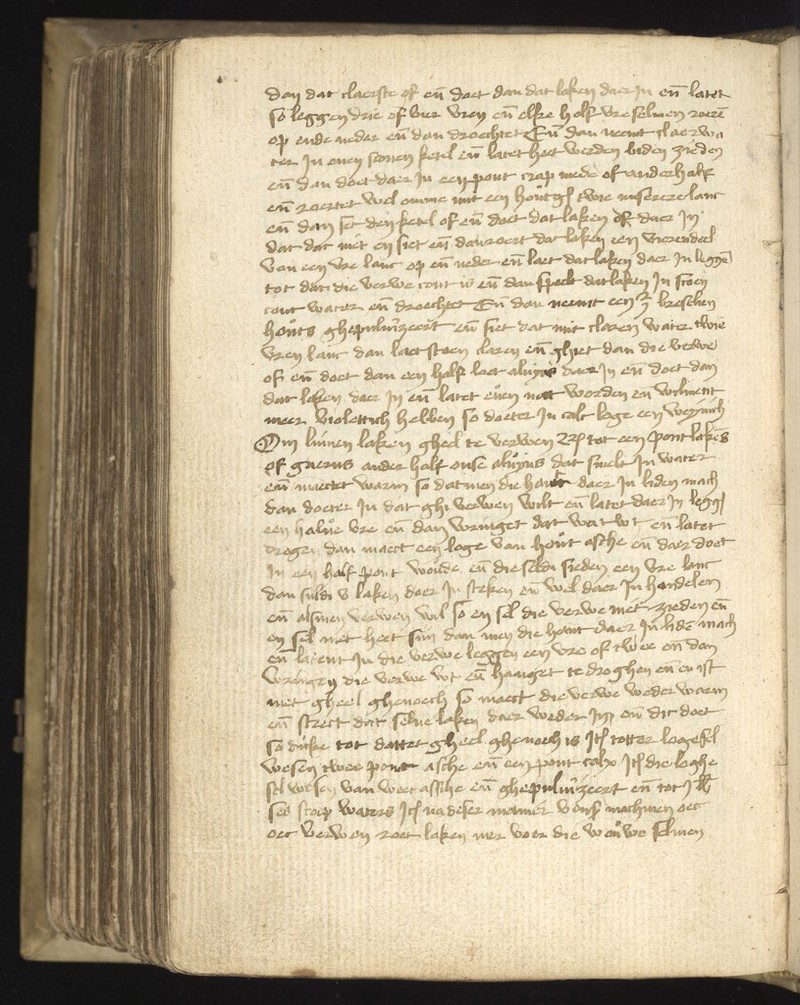 dan dat claerste of en̄ doet dan dat laken daer in en̄ latet
so leggen drie of vier vren en̄ elke half vre selmen roerē
op ende neder en̄ dan droechtet En̄ dan neemt claer wa
ter in enen sconen ketel en̄ latet heet werden biden zieden
en̄ dan doet daer in een pont crap mede of anderhalf
en̄ roertet wel omme mit een hout twie misereze lanc
en̄ dan set den ketel of en̄ doet dat laken of daer in
dat dat niet en siet en̄ dan roert dat laken een vierendeel
van een vre lanc op en̄ neder en̄ laet dat laken daer in leggē
tot dat die verwe cout is en̄ dan spoelt dat laken in scoen
cout water en̄ droechtet En̄ dan neemt een bresilien
houts ghepulverizeert en̄ siet dat mit claren water twie
vren lanc dan laet staen claren en̄ ghiet dan die verwe
of en̄ doet dan een half loet aluyns daer in en̄ doet dan
dat laken daer in en̄ latet euen nat worden en̄ wilment
meer violettich hebben so doetet in calc loge een weynich
Om linnen laken gheel te verwen tot een pont lakēs
of gaerns ander half onse aluyns dat smelt in water
en̄ maectet warm so datmen die hant daer in liden mach
dan doetet in dat ghi verwen wilt en̄ latet daer in
een halue vre en̄ dan wringet dat wat wt en̄ latet
drogen dan maect een loge van hout asche en̄ daer doet
in een half pont woude en̄ die seldi sieden een vre lanc
dan suldi v laken daer in steken en̄ wel daer in handelen
en̄ alsmen verwen wil so en sel die verwe niet zieden en̄
en sel niet heet sijn dan men die hant daer in lidē mach
en̄ latent in die verwe leggen een vre of twee en̄ dan
wringen die verwe wt en̄ hanget te droghen en̄ en ist
niet gheel ghenoech so maect die verwe weder warm
en̄ strect dat selue laken daer weder in en̄ dit doet
so dicke tot dattet gheel ghenoech is totter loege sel
wesen twee pont asche en̄ een pont calx die loghe
sel wesen van weet assche en̄ ghepulverizeert en̄ tot
ses stoep waters na deser manier machmen oec
oec verwen roet laken mer voer die wouwe selmen